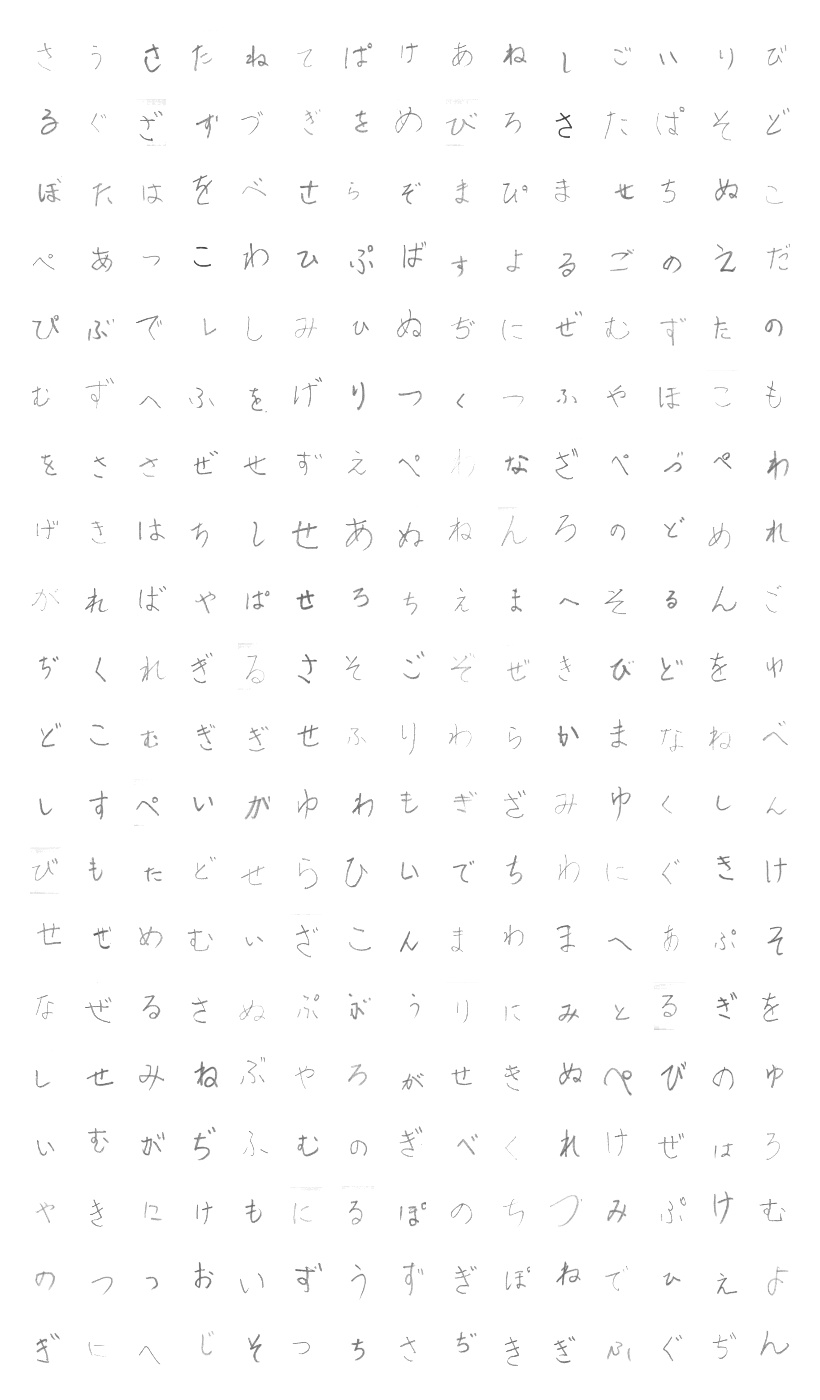 さうさたねてぱけあねしごいりび
るぐざすづぎをめびろさたぱそど
ぼたはをべせらぞまぴませちぬこ
ぺあっこわひぷばすよるごのえだ
ぴぶでししみひぬぢにぜむずたの
むずへふをげりつくつふやほこも
をささぜせずえぺわなざぺづぺわ
げきはちしせあぬねんろのどめれ
がればやぱせろちえまへそるんご
ぢくれぎるさそごぞぜきびどをゆ
どこむぎぎせふりわらかまなねべ
しすぺいがゆわもぎざみゆくしん
びもたどせらひいでちわにぐきけ
せぜめむいざこんまわまへあぷそ
なぜるさぬぷぶうりにみとるぎを
しせみねぶやろがせきぬぺびのゆ
いむがぢふむのぎべくれけぜはろ
やきにけもにるぽのちづみぷけむ
のつつおいずうずぎぽねでひえよ
ぎにへじそつちさぢきぎふぐぢん